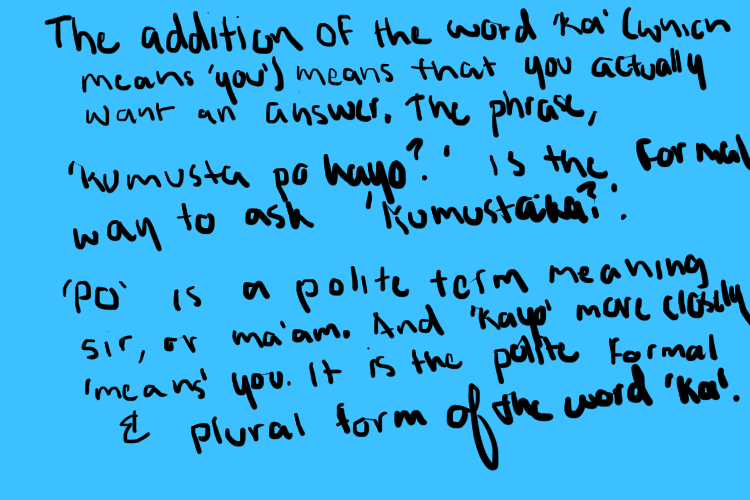 The addition of the word 'ka' (which
means 'you') means that you actually
want an answer. The phrase,
'kumusta po kayo?' is the formal
way to ask 'Kumustaka?'.
'Po' is a polite term meaning
sir, or ma'am. And 'Kayo' more closely
'means' you. It is the polite formal
& plural form of the word 'Ka'.